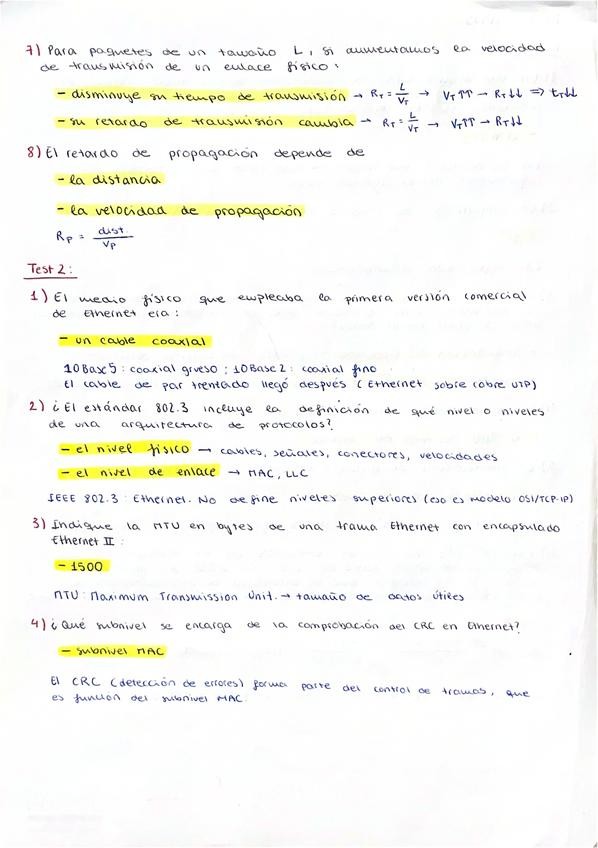 7) Para paquetes de un tamaño L, si aumentamos la velocidad
de transmisión de un enlace físico:
- disminuye su tiempo de transmisión → R_T = L/V_T → V_T↑↑ → R_T↓↓ ⇒ t_T↓↓
- su retardo de transmisión cambia → R_T = L/V_T → V_T↑↑ → R_T↓↓
8) El retardo de propagación depende de
- la distancia
- la velocidad de propagación
R_P = dist./V_P
Test 2:
1) El medio físico que empleaba la primera versión comercial
de Ethernet era:
- un cable coaxial
10Base5: coaxial grueso; 10Base2: coaxial fino
El cable de par trenzado llegó después (Ethernet sobre cobre UTP)
2) ¿El estándar 802.3 incluye la definición de qué nivel o niveles
de una arquitectura de protocolos?
- el nivel físico → cables, señales, conectores, velocidades
- el nivel de enlace → MAC, LLC
IEEE 802.3: Ethernet. No define niveles superiores (eso es modelo OSI/TCP-IP)
3) Indique la MTU en bytes de una trama Ethernet con encapsulado
Ethernet II:
- 1500
MTU: Maximum Transmission Unit. → tamaño de datos útiles
4) ¿Qué subnivel se encarga de la comprobación del CRC en Ethernet?
- subnivel MAC
El CRC (detección de errores) forma parte del control de tramas, que
es función del subnivel MAC.